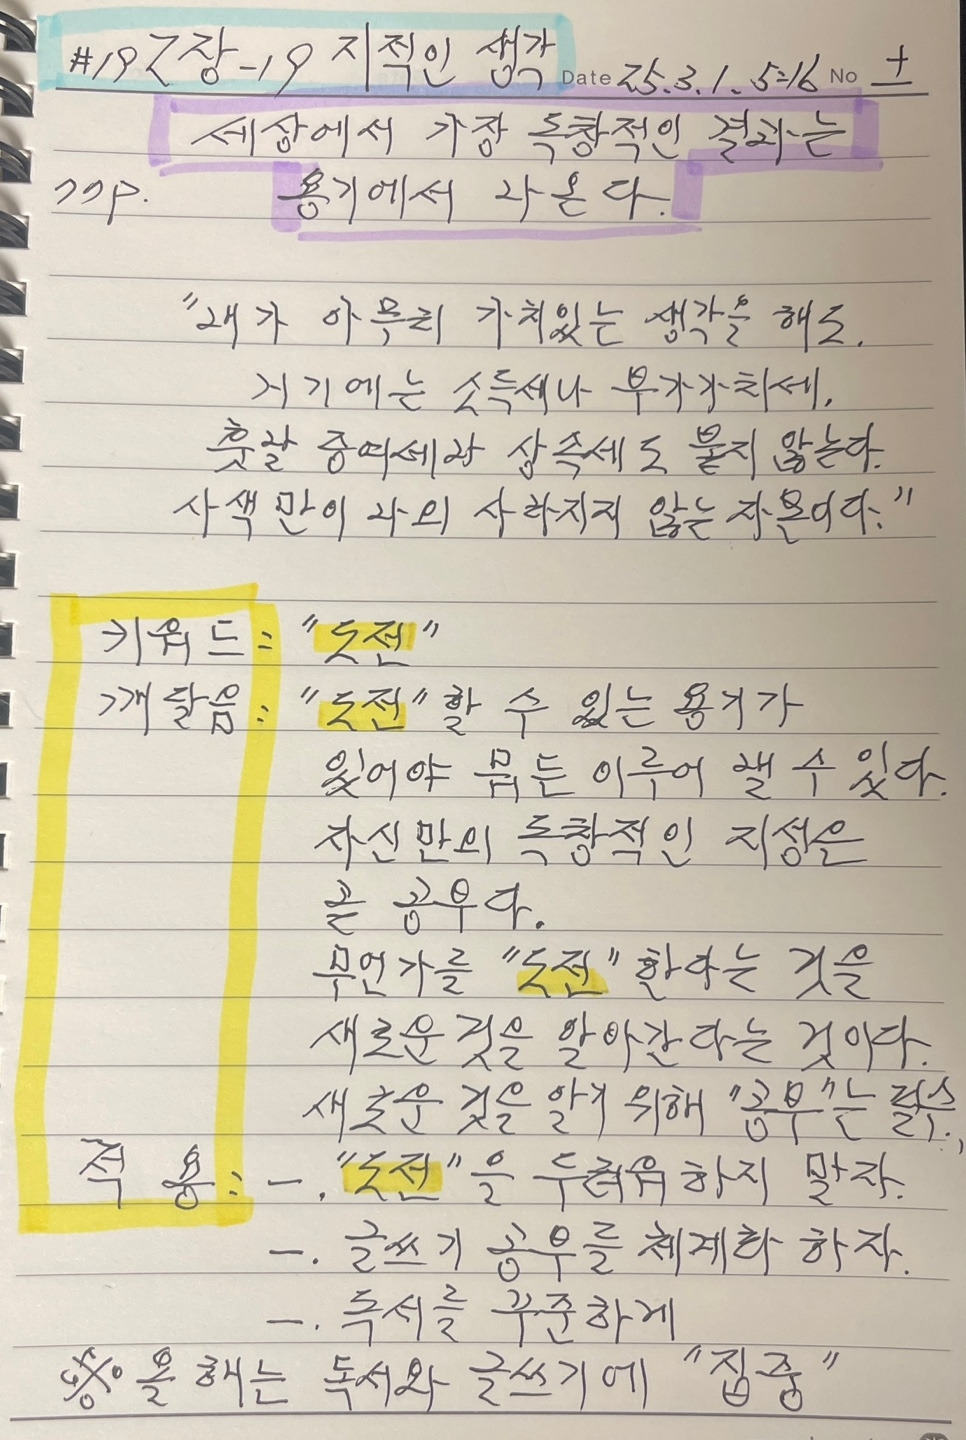 #19 2장-19 지적인 생각 Date 25.3.1. 5:16 No 土
세상에서 가장 독창적인 결과는
77p. 용기에서 나온다.
"내가 아무리 가치있는 생각을 해도,
거기에는 소득세나 부가가치세,
훗날 증여세와 상속세도 붙지 않는다.
사색만이 나의 사라지지 않는 자본이다."
키워드 : "도전"
깨달음 : "도전"할 수 있는 용기가
있어야 뭐든 이루어 낼 수 있다.
자신만의 독창적인 지성은
곧 공부다.
무언가를 "도전"한다는 것은
새로운 것을 알아간다는 것이다.
새로운 것을 알기 위해 "공부"는 필수.,
적 용 : ㅡ. "도전"을 두려워하지 말자.
ㅡ. 글쓰기 공부를 체계화 하자.
ㅡ. 독서를 꾸준하게
※ 올해는 독서와 글쓰기에 "집중"